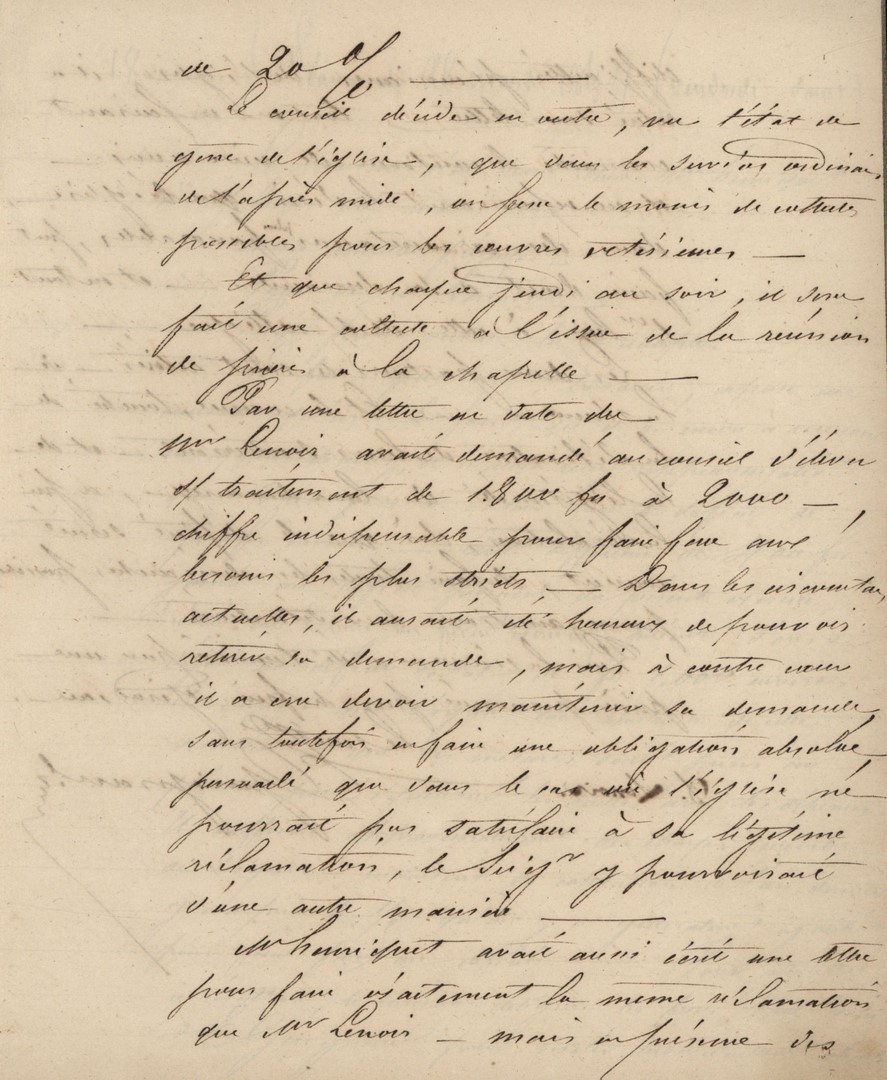 de 20 % ———
Le conseil décide en outre, vu l'état de
gêne de l'église, que dans les services ordinair.
de l'après midi, on fera le moins de collectes
possibles pour les œuvres extérieures —
Et que chaque jeudi au soir, il sera
fait une collecte à l'issue de la réunion
de prières à la chapelle —
Par une lettre en date du
Mr Lenoir avait demandé au conseil d'élever
s/ traitement de 1800 frs à 2000 —
chiffre indispensable pour faire face aux
besoins les plus stricts. — Dans les circonstances
actuelles, il aurait été heureux de pouvoir
retirer sa demande, mais à contre cœur
il a cru devoir maintenir sa demande,
sans toutefois en faire une obligation absolue
persuadé que dans le cas où l'église ne
pourrait pas satisfaire à sa légitime
réclamation, le Seigr y pourvoirait
d'une autre manière ———
Mr henriquet avait aussi écrit une lettre
pour faire exactement la même réclamation
que Mr Lenoir — mais en présence des